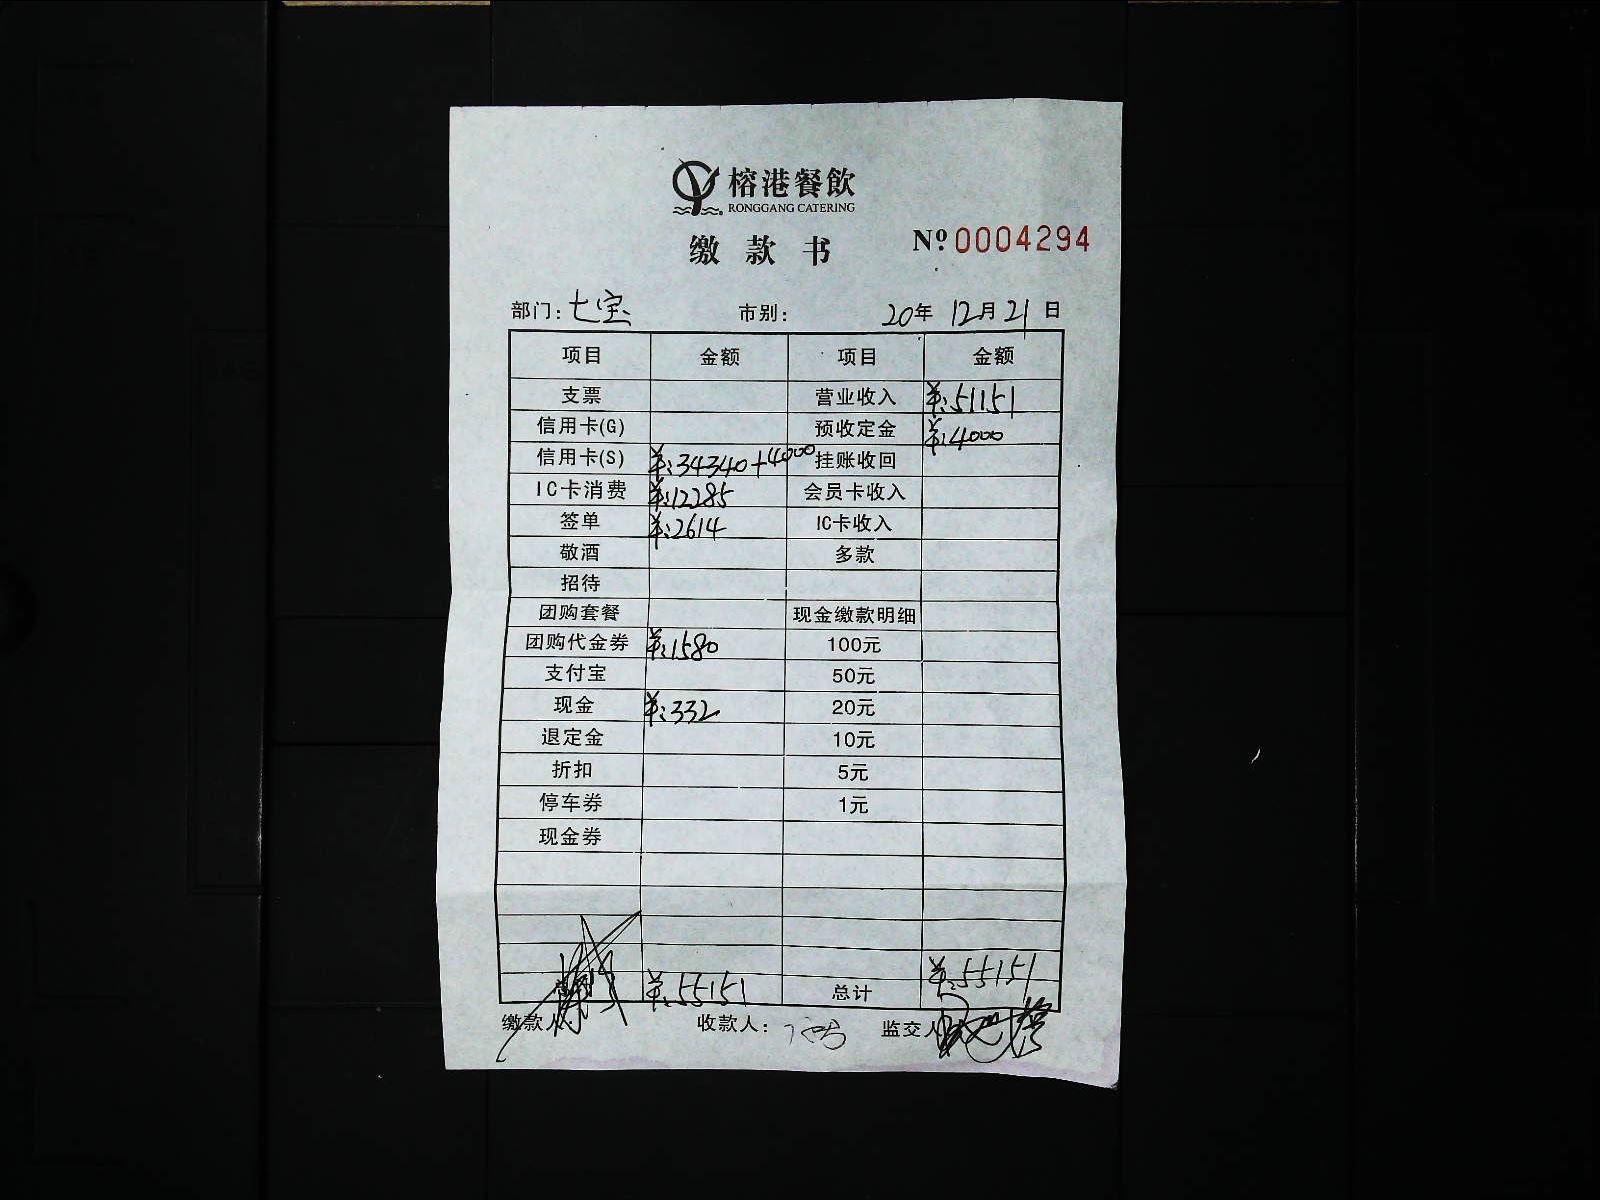 榕港餐飲
RONGGANG CATERING
缴款书 Nº 0004294
部门: 七宝 市别: 20年 12月 21日
项目 金额 项目 金额
支票 营业收入 ¥:51151
信用卡(G) 预收定金 ¥:4000
信用卡(S) ¥:34340+4000 挂账收回
IC卡消费 ¥:12285 会员卡收入
签单 ¥:2614 IC卡收入
敬酒 多款
招待
团购套餐 现金缴款明细
团购代金券 ¥:1580 100元
支付宝 50元
现金 ¥:332 20元
退定金 10元
折扣 5元
停车券 1元
现金券
¥:55151 总计 ¥:55151
缴款人: 收款人: 监交人